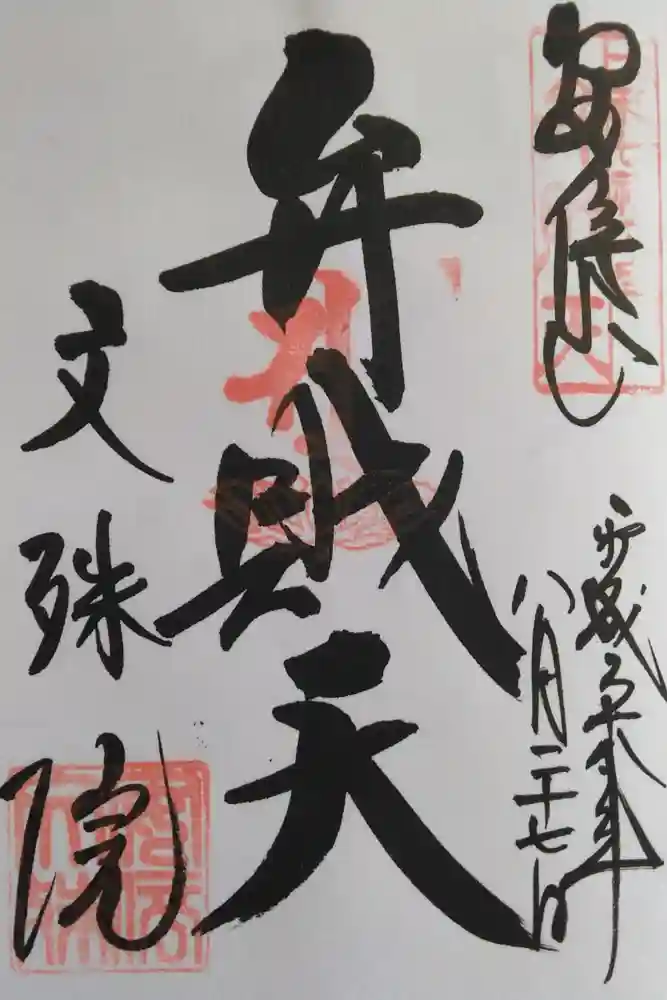 安倍山
平成三十年
八月二十七日
弁財天
文殊院